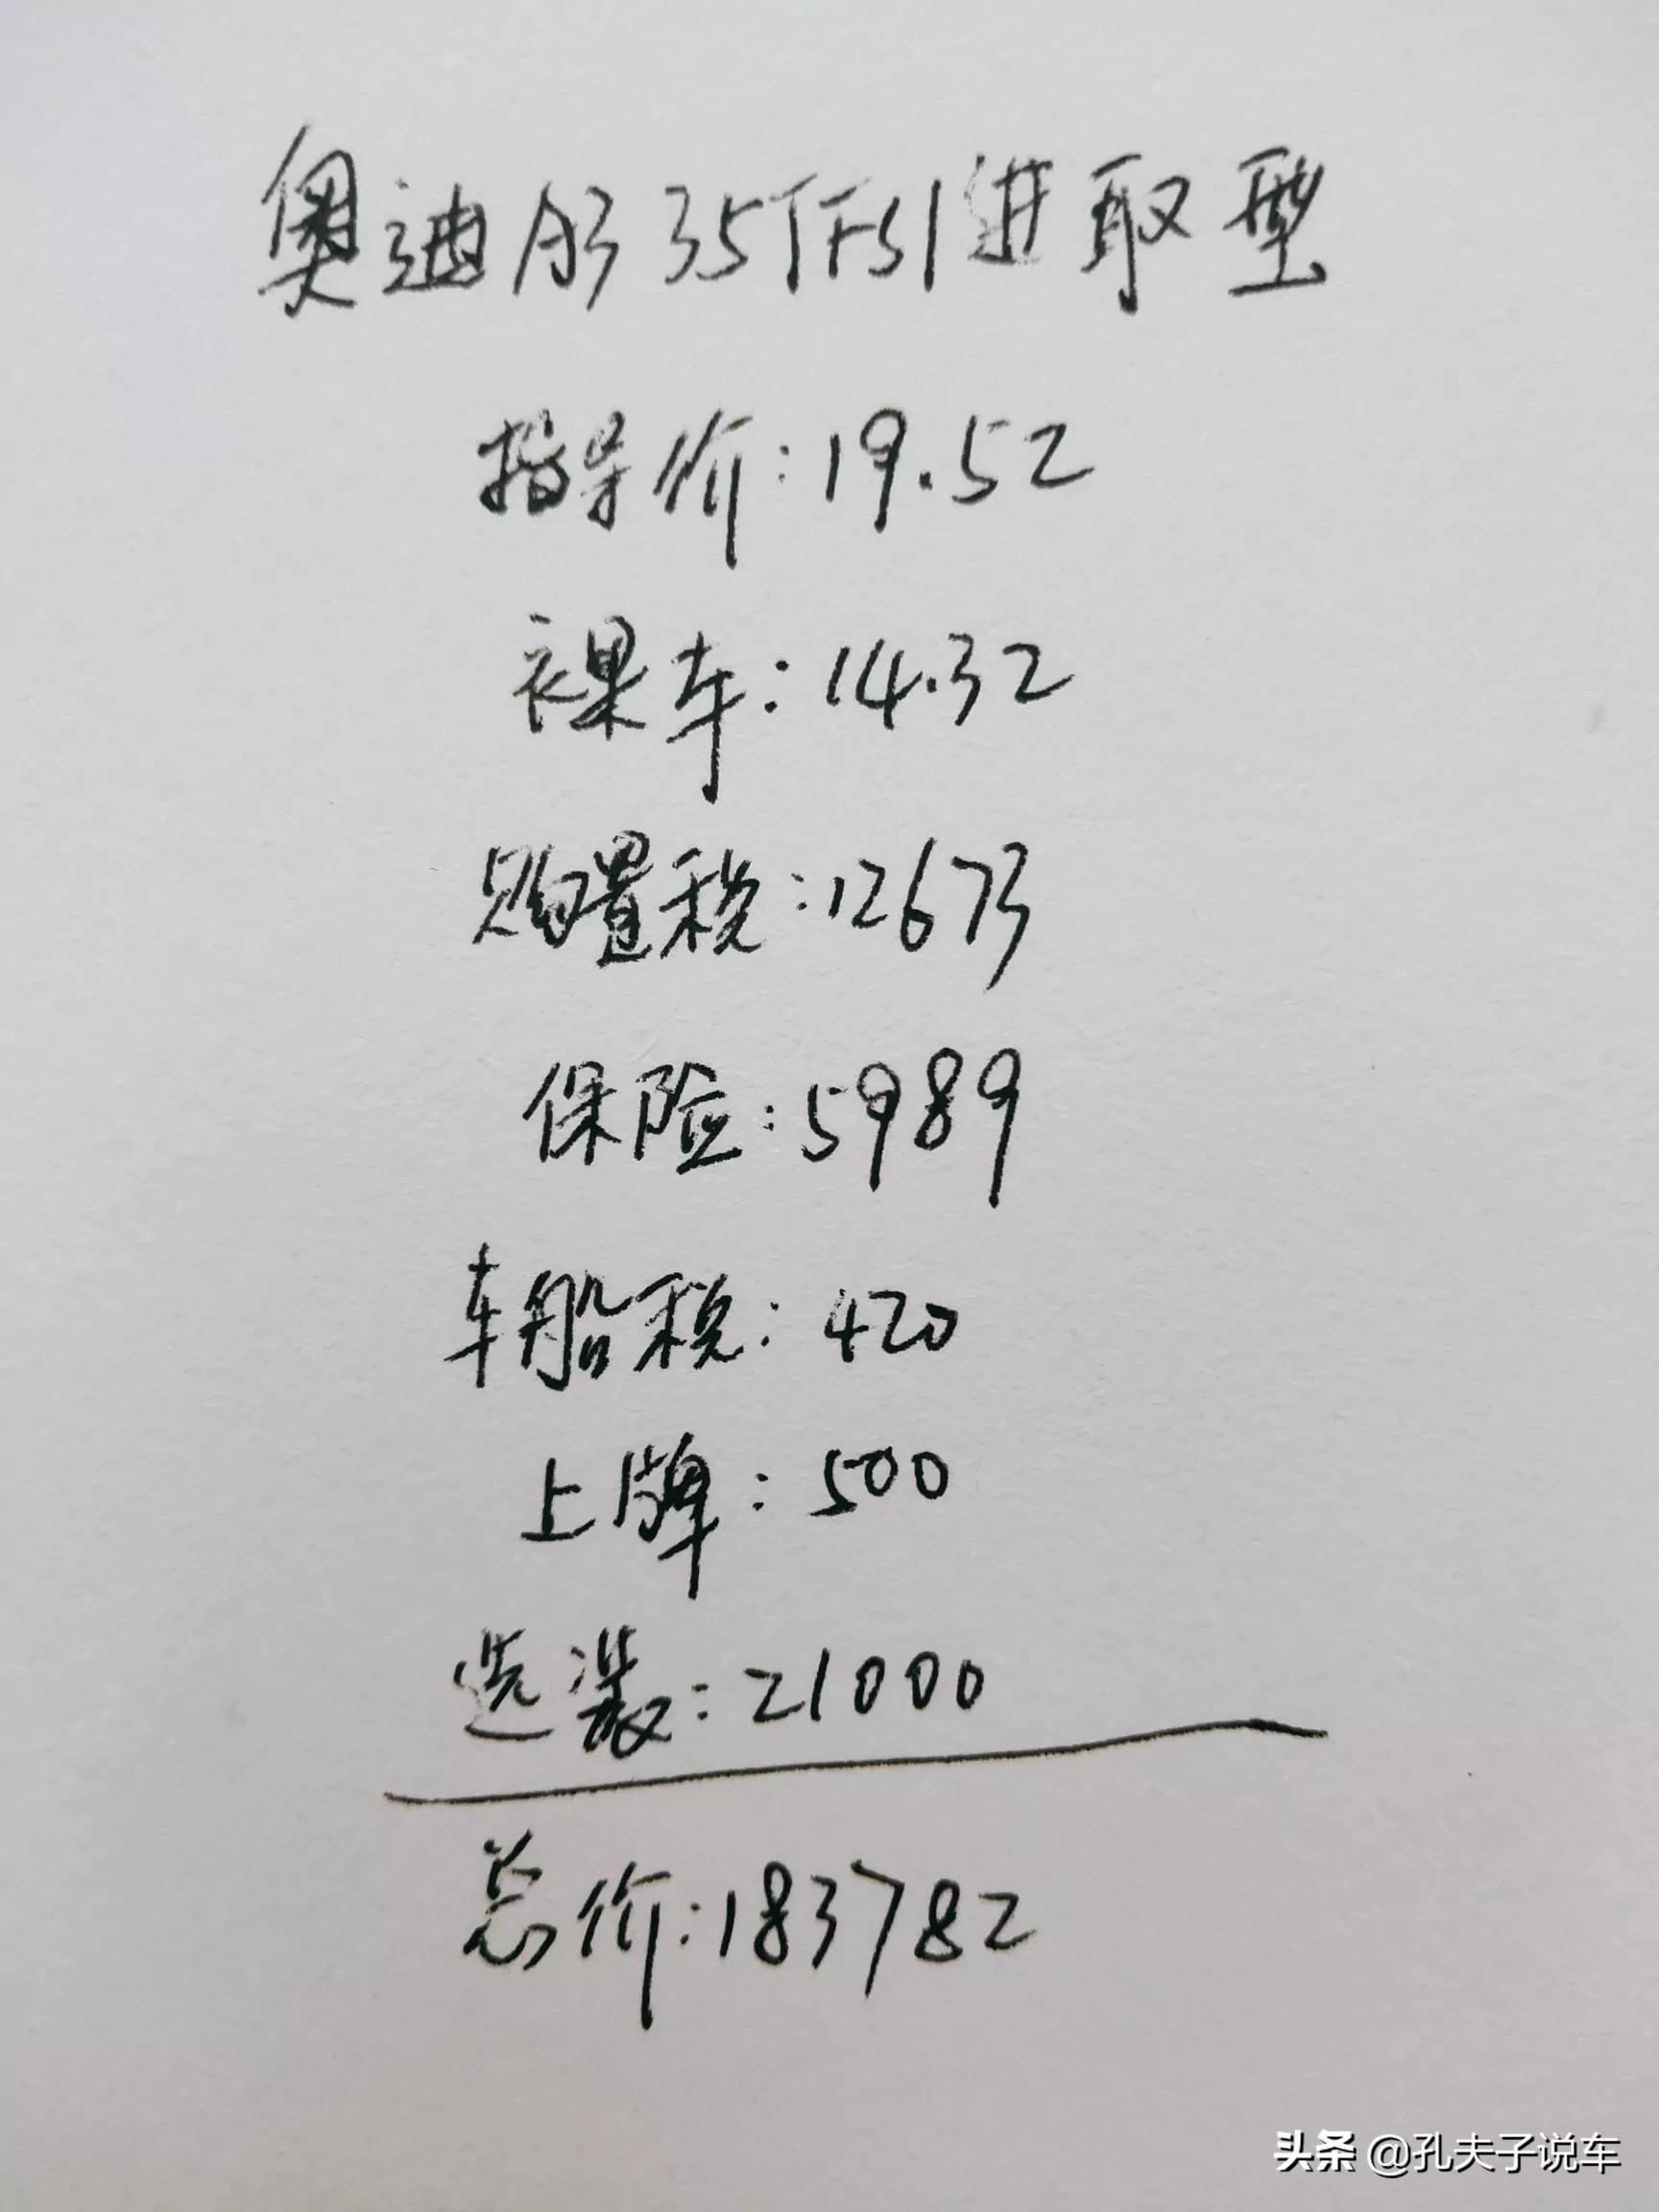 奥迪A3 35TFSI进取型
指导价:19.52
裸车:14.32
购置税:12673
保险:5989
车船税:420
上牌:500
选装:21000
总价:183782
头条 @孔夫子说车